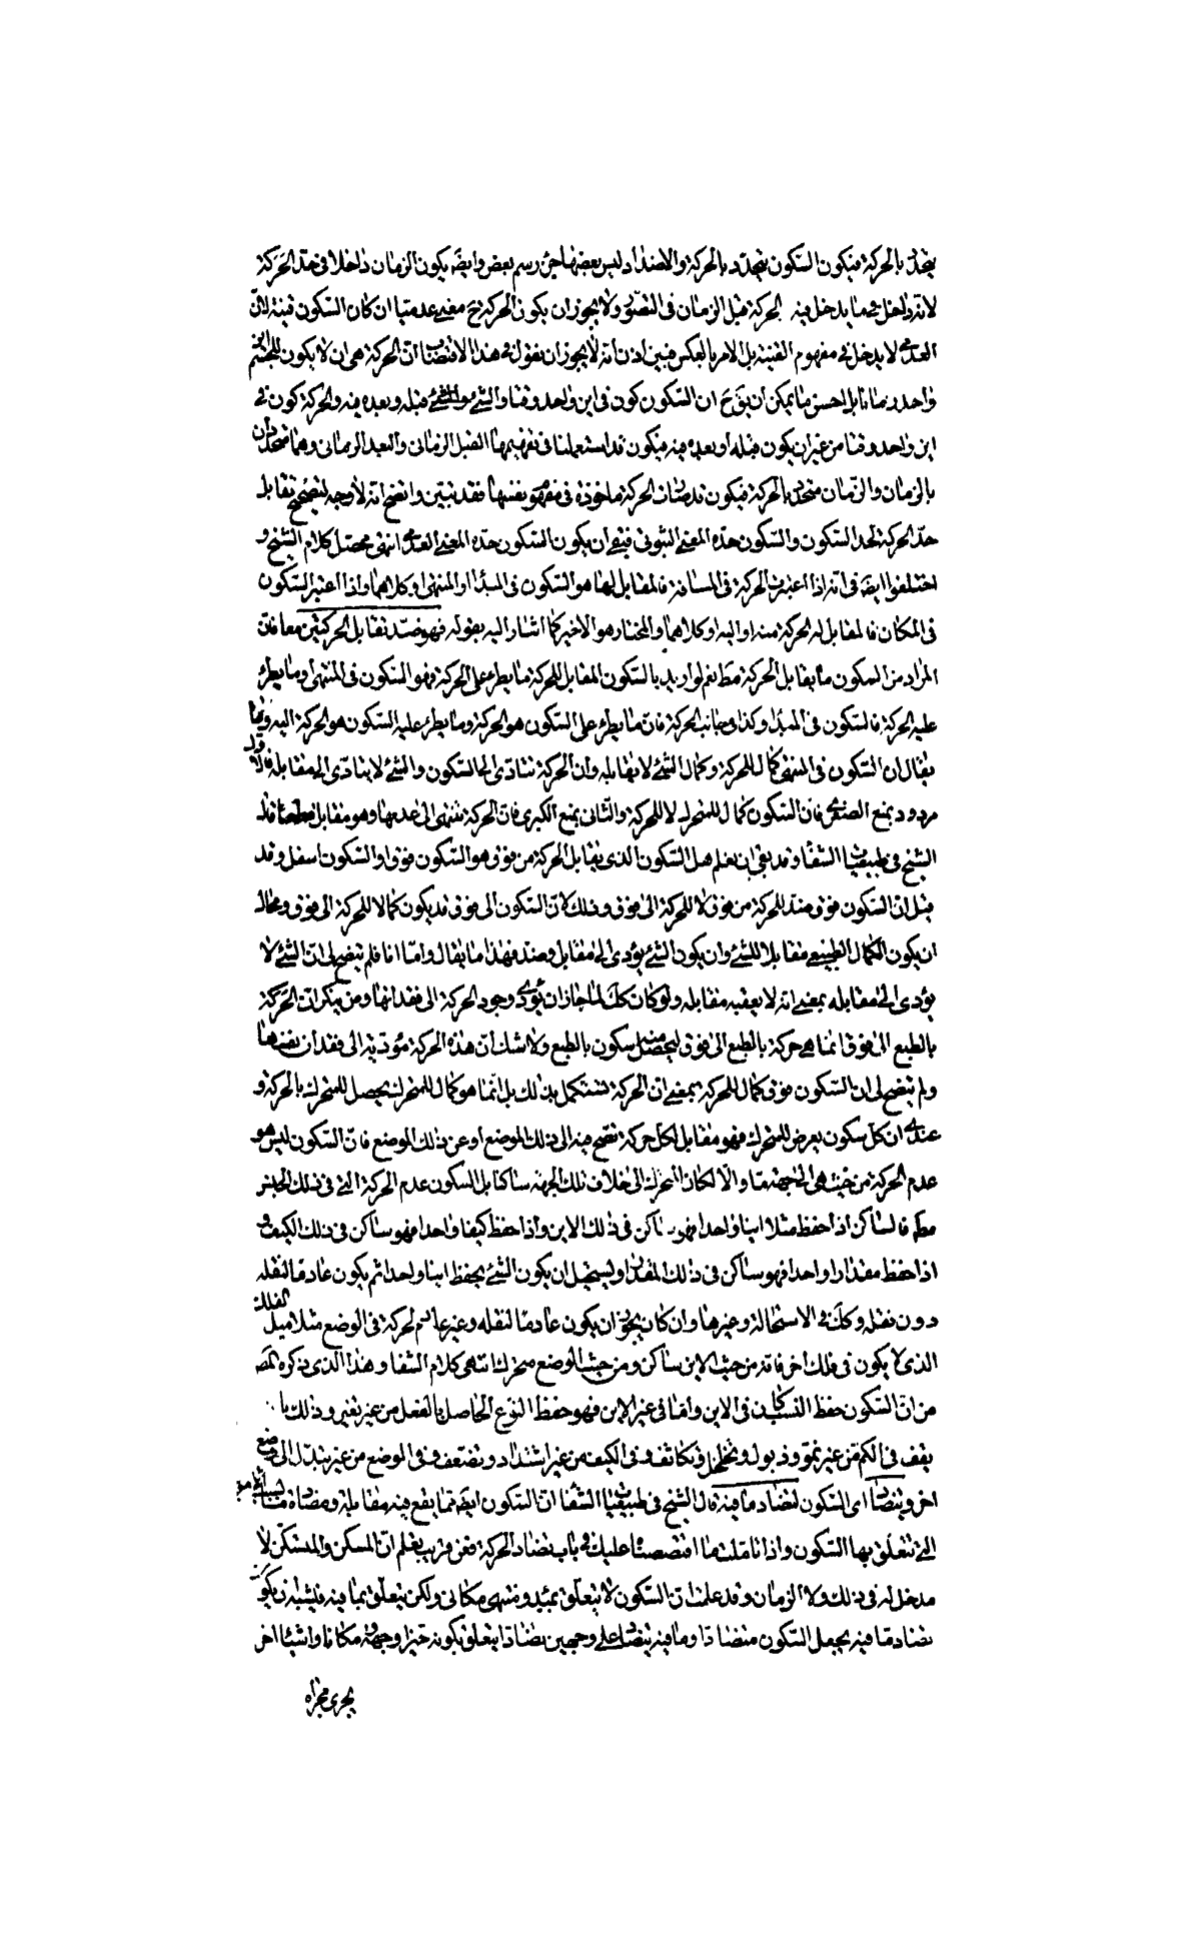 يتحدد بالحركة فيكون السكون يتحدد بالحركة والاضداد ليس بعضها جزء رسم بعض وايضا يكون الزمان داخلا في حد الحركة
لانه داخل في ما يدخل فيه الحركة قبل الزمان في التصور ولا يجوز ان يكون الحركة ح معنى عدميا ان كان السكون قنية لان
العدم لا يدخل في مفهوم القنية بل الامر بالعكس فبين اذن انه لا يجوز ان نقول في هذا الاقتضاب ان الحركة هي ان لا يكون للجسم اين
واحد زمانا بل احسن ما يمكن ان يق ح ان السكون كون في اين واحد وقتا والشئ قبله وبعده فيه والحركة كون في
اين واحد وقتا من غير ان يكون قبله او بعده فيه فيكون قد استعملنا في تفهيمها القبل الزماني والبعد الزماني وهما متحددان
بالزمان والزمان متحدد بالحركة فيكون قد صارت الحركة ماخوذة في مفهوم نفسها فقد تبين واتضح انه لا وجه لتصحيح تقابل
حد الحركة لحد السكون والسكون حده المعنى الثبوتى فبقى ان يكون السكون حده المعنى العدمى انتهى محصل كلام الشيخ و
اختلفوا ايضا في انه اذا اعتبرت الحركة في المسافة فالمقابل لها هو السكون في المبدأ او المنتهى او كلاهما واذا اعتبر السكون
في المكان فالمقابل له الحركة منه او اليه او كلاهما والمختار هو الاخير كما اشار اليه بقوله فهو ضد تقابل الحركتين معا فان
المراد من السكون ما يقابل الحركة مط نعم لو اريد بالسكون المقابل للحركة ما يطرء على الحركة فهو السكون في المنتهى او ما يطرء
عليه الحركة فالسكون في المبدأ وكذا في جانب الحركة فان ما يطرء على السكون هو الحركة وما يطرء عليه السكون هو الحركة اليه وما
يقال ان السكون في المنتهى كمال للحركة وكمال الشئ لا يقابله وان الحركة تتادى الى السكون والشئ لا يتادى الى مقابله فالاول
مردود بمنع الصغرى فان السكون كمال للمتحرك لا للحركة والثاني بمنع الكبرى فان الحركة تنتهى الى عدمها وهو مقابل لها قال
الشيخ في طبيعيات الشفا وقد بقي ان نعلم هل السكون الذي يقابل الحركة من فوق هو السكون فوق او السكون اسفل وقد
قيل ان السكون فوق ضد للحركة من فوق لا للحركة الى فوق وذلك لان السكون الى فوق قد يكون كمالا للحركة الى فوق ومحال
ان يكون الكمال الطبيعي مقابلا للشئ وان يكون الشئ يؤدى الى مقابل وضد فهذا ما يقال واما انا فلم يتضح لى ان الشئ لا
يؤدى الى مقابله بمعنى انه لا يعقبه مقابله ولو كان كك لما جاز ان يؤدى وجود الحركة الى فقدانها ومن ينكر ان الحركة
بالطبع الى فوق انما هي حركة بالطبع الى فوق ليحصل منه سكون بالطبع ولا شك ان هذه الحركة مؤدية الى فقدان نفسها
ولم يتضح لى ان السكون فوق كمال للحركة بمعنى ان الحركة تستكمل بذلك بل انما هو كمال للمتحرك يحصل للمتحرك بالحركة و
عندى ان كل سكون يعرض للمتحرك فهو مقابل لكل حركة تصح فيه الى ذلك الموضع او عن ذلك الموضع فان السكون ليس هو
عدم الحركة من حيث هي الى جهة ما والا لكان المتحرك الى خلاف تلك الجهة ساكنا بل السكون عدم الحركة التي في ذلك الجنس
مط فالساكن اذا حفظ مثلا اينا واحدا فهو ساكن في ذلك الاين واذا حفظ كيفا واحدا فهو ساكن في ذلك الكيف و
اذا حفظ مقدارا واحدا فهو ساكن في ذلك المقدار ويستحيل ان يكون الشئ يحفظ اينا واحدا ثم يكون عادما لنقله
دون نقله وكك في الاستحالة وغيرها وان كان يجوز ان يكون عادما لنقله وغير عادم لحركة في الوضع مثلا ميل الفلك
الذي لا يكون في فلك اخر فانه من حيث الاين ساكن ومن حيث الوضع متحرك انتهى كلام الشفا وهذا الذي ذكره المص
من ان السكون حفظ النسب كان في الاين واما في غير الاين فهو حفظ النوع الحاصل بالفعل من غير تغير وذلك بان
يقف في الكم من غير نمو وذبول وتخلخل وتكاثف وفي الكيف من غير اشتداد وتضعف وفي الوضع من غير تبدل الى وضع
اخر ويتضاد اى السكون لتضاد ما فيه قال الشيخ في طبيعيات الشفا ان السكون ايضا مما يقع فيه مقابلة ومضادة
التي تتعلق بها السكون واذا تاملت ما اقتصصنا عليك في باب تضاد الحركة فعن قريب تعلم ان المسكن والمتسكن لا
مدخل له في ذلك ولا الزمان وقد علمت ان السكون لا يتعلق بمبدء ومنتهى مكانى ولكن يتعلق بما فيه فيشبه ان يكون
تضاد ما فيه يجعل السكون متضادا وما فيه يتضاد على وجهين تضادا يتعلق بكونه حيزا وجهة ومكانا واشياء اخر
يجرى مجراه